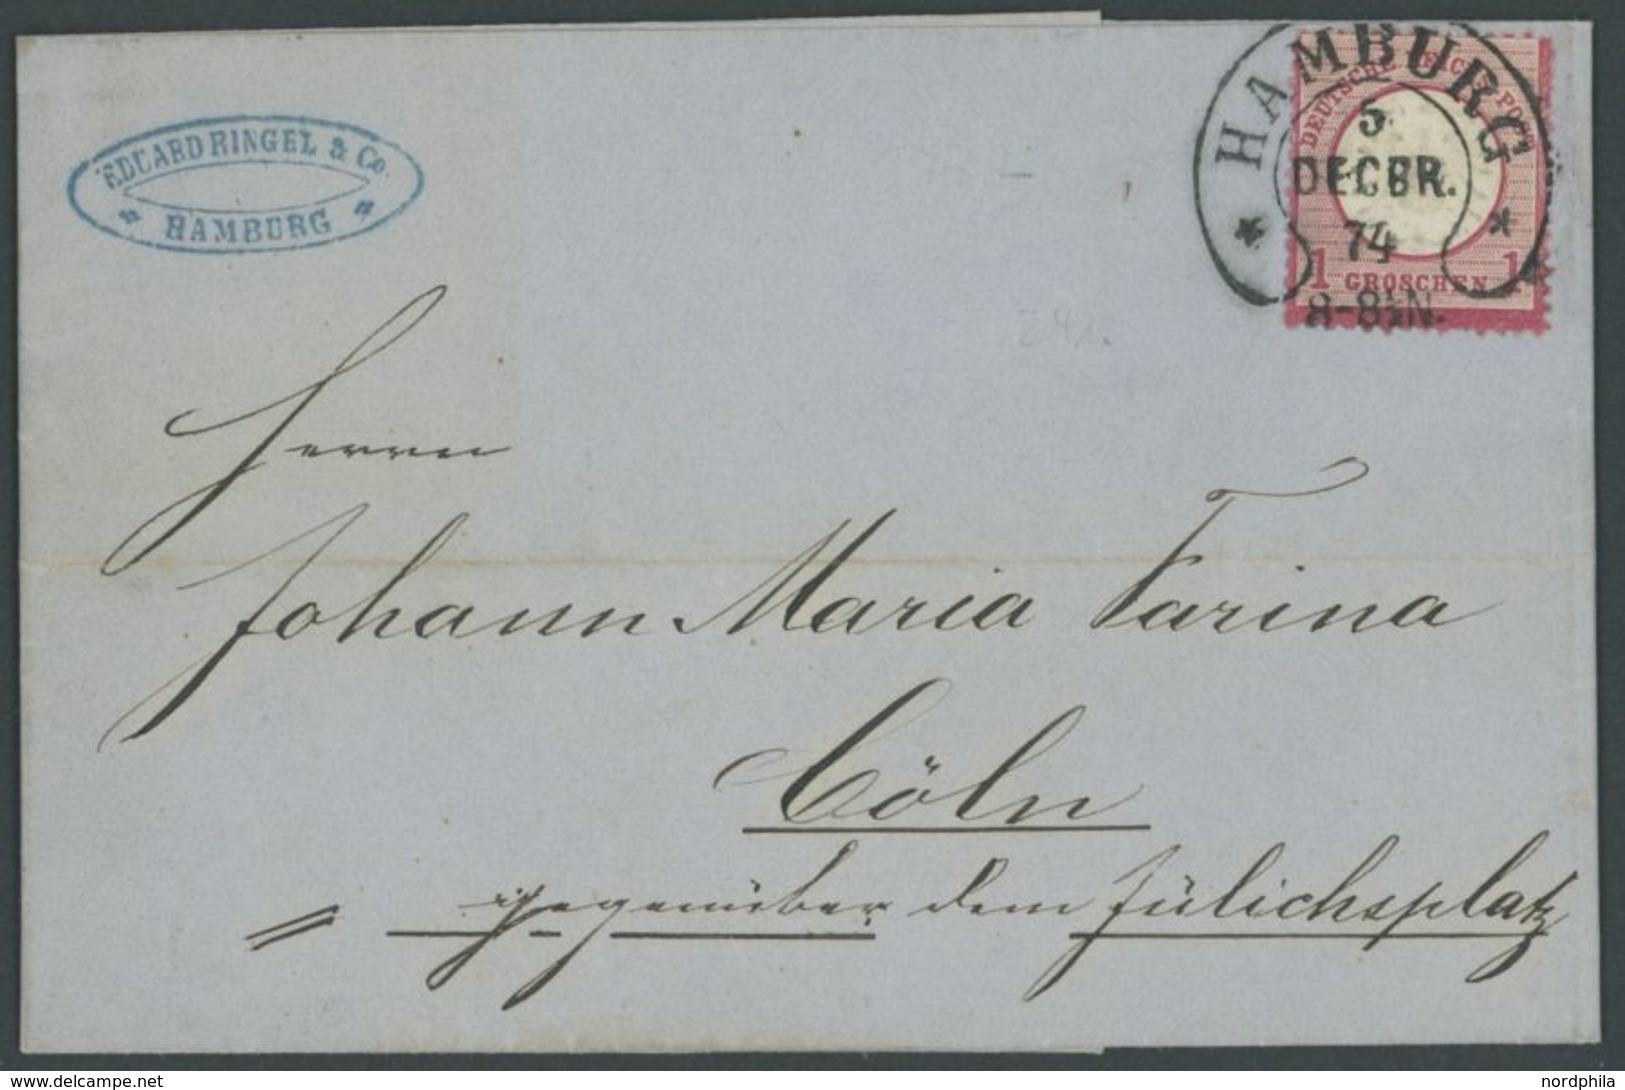 EDUARD RINGEL & Co
HAMBURG
HAMBURG
5
DECBR.
74
8-8½N.
DEUTSCHE REICHS-POST
1 GROSCHEN 1
Herrn
Johann Maria Farina
Cöln
gegenüber dem Jülichsplatz
www.delcampe.net
nordphila